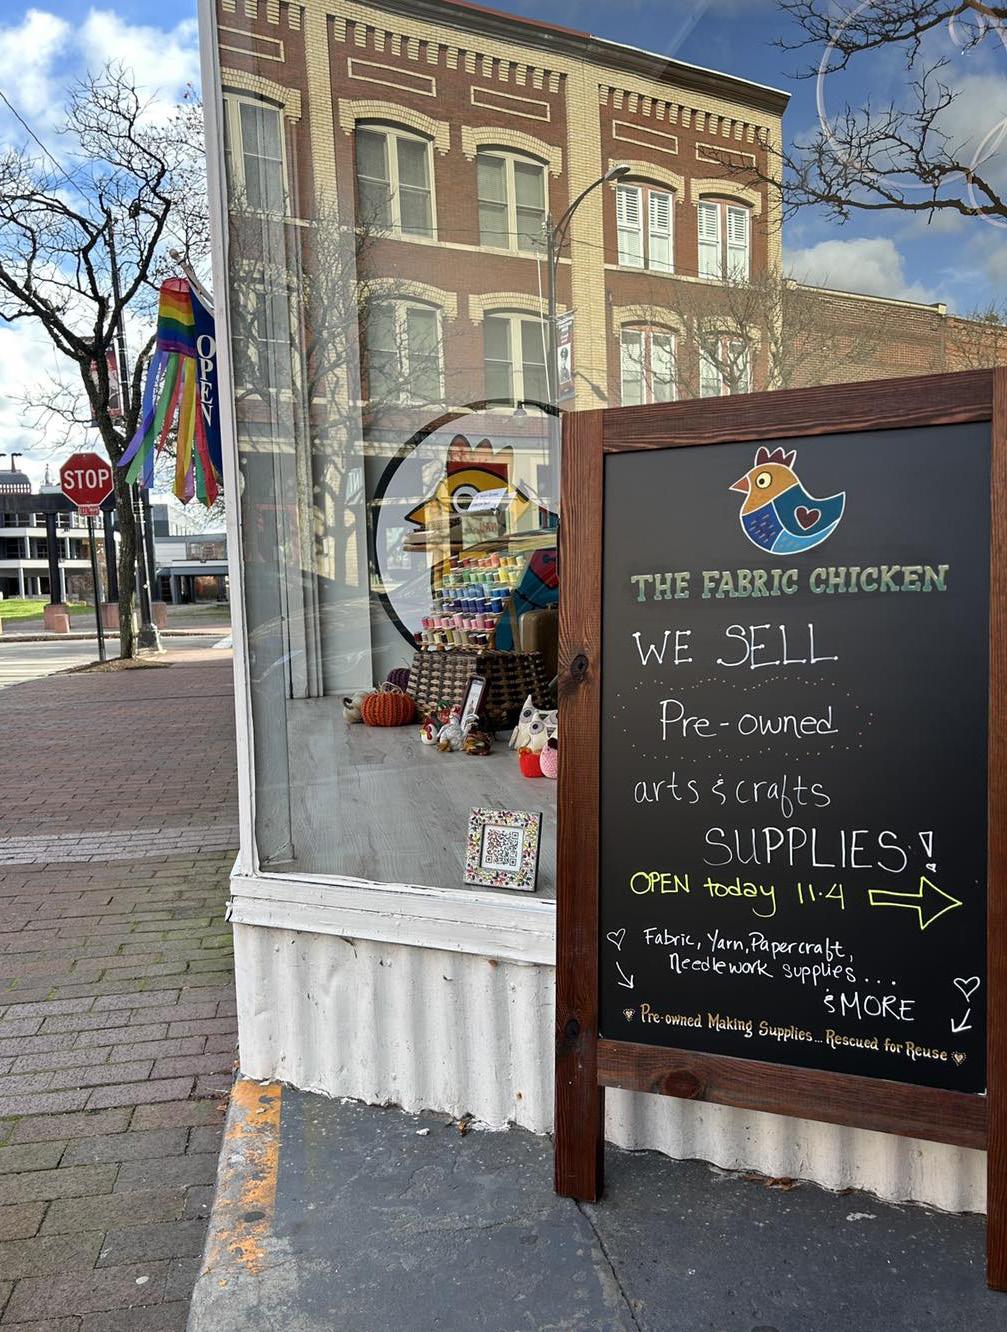 OPEN
STOP
THE FABRIC CHICKEN
WE SELL
Pre-owned
arts & crafts
SUPPLIES!
OPEN today 11-4
Fabric, Yarn, Papercraft,
Needlework supplies....
& MORE
Pre-owned Making Supplies... Rescued for Reuse